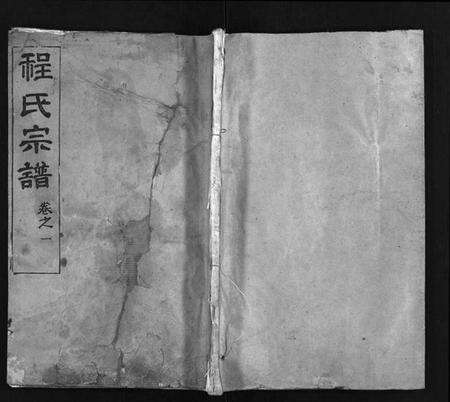 程氏宗譜
卷之一